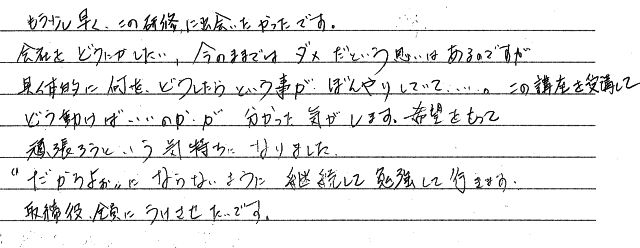 もう少し早く、この研修に出会いたかったです。
会社をどうにかしたい、今のままではダメだという思いはあるのですが
具体的に何を、どうしたらという事が ぼんやりしていて……。この講座を受講して
どう動けばいいのかが 分かった気がします。希望をもって
頑張ろうという気持ちになりました。
"だからよか"にならないように 継続して勉強して行きます。
取締役全員にうけさせたいです。